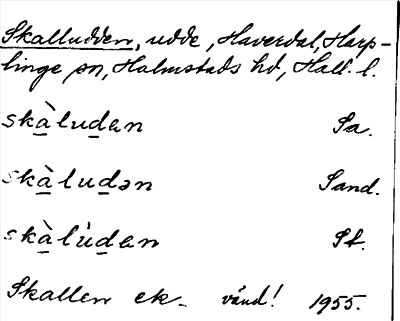 Skalludden, udde, Haverdal, Harp-
linge sn, Halmstads hd, Hall. l.
skàluden Sa.
skàludən Sand.
skàlùden St.
Skallen ek. vänd! 1955.